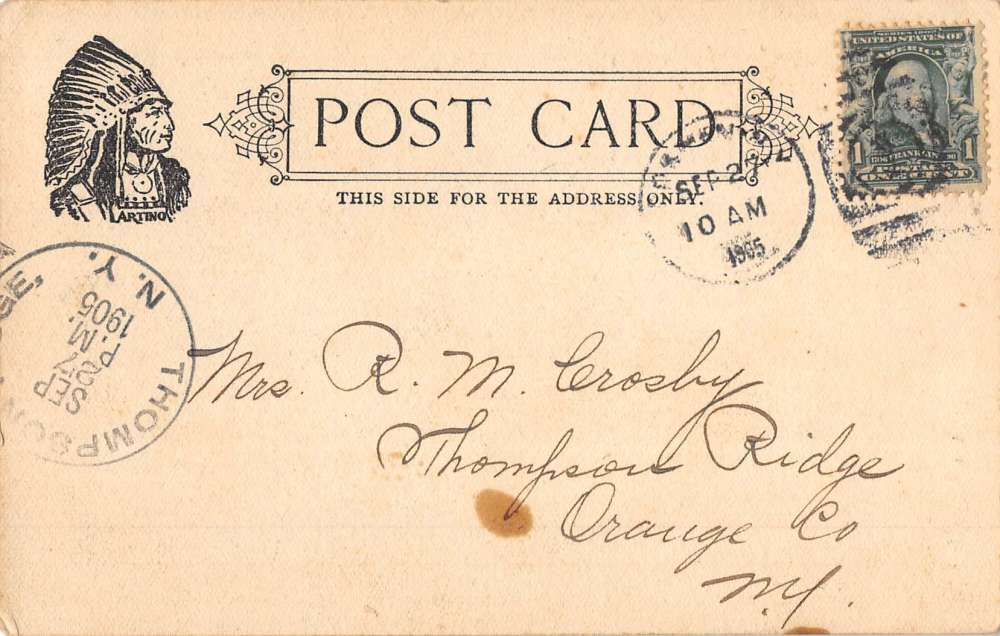 SERIES 1902
UNITED STATES OF
AMERICA
1 1
ONE CENT
POST CARD
THIS SIDE FOR THE ADDRESS ONLY.
ARTINO
SEP 2
10 AM
1905
THOMPSON
N.Y.
SEP
P.M.
1905
Mrs. R. M. Crosby
Thompson Ridge
Orange Co
N.Y.